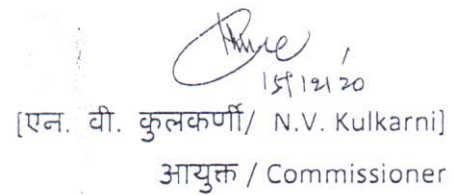 [एन. वी. कुलकर्णी/ N.V. Kulkarni]
आयुक्त / Commissioner